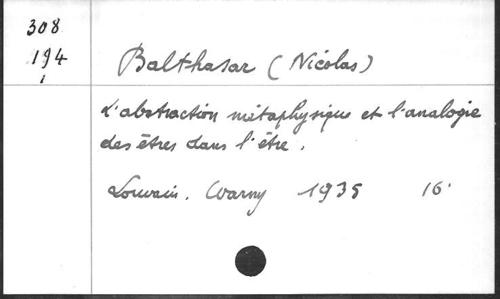 308
194
1
Balthasar (Nicolas)
L'abstraction métaphysique et l'analogie
des êtres dans l'être.
Louvain. Warny 1935 16°